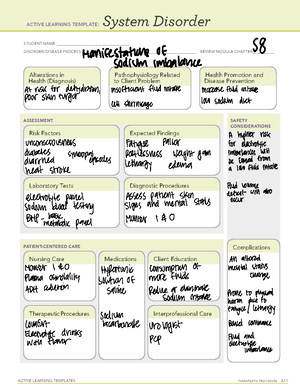 ACTIVE LEARNING TEMPLATE: System Disorder
STUDENT NAME
DISORDER/DISEASE PROCESS Manifestations of
sodium imbalance
REVIEW MODULE CHAPTER 58
Alterations in
Health (Diagnosis)
At risk for dehydration,
poor skin turgor
Pathophysiology Related
to Client Problem
Insufficient fluid intake
Cell shrinkage
Health Promotion and
Disease Prevention
Increase fluid intake
low sodium diet
ASSESSMENT
SAFETY
CONSIDERATIONS
Risk Factors
unconsciousness
diabetes
syncopal
episodes
diarrhea
heat stroke
Expected Findings
Fatigue
Pallor
Restlessness
weight gain
Lethargy
edema
Laboratory Tests
electrolyte panel
sodium level testing
BMP - basic
metabolic panel
Diagnostic Procedures
Assess patient skin
signs and mental status
Monitor I & O
A higher risk
for electrolyte
imbalances will
be caused from
a low fluid intake
Fluid volume
deficit will also
occur
PATIENT-CENTERED CARE
Complications
Nursing Care
Monitor I & O
Plasma osmolality
ADH
Medications
Hypertonic
solution of
saline
Sodium
bicarbonate
Client Education
Consumption of
more fluids
Reduce or eliminate
sodium intake
Therapeutic Procedures
Comfort
Electrolyte drinks
with flavor
Interprofessional Care
Urologist
PCP
An altered
mental status
changes
Prone to physical
harm due to
fatigue / lethargy
Fluid and
electrolyte
imbalance
ACTIVE LEARNING TEMPLATES
THERAPEUTIC PROCEDURE